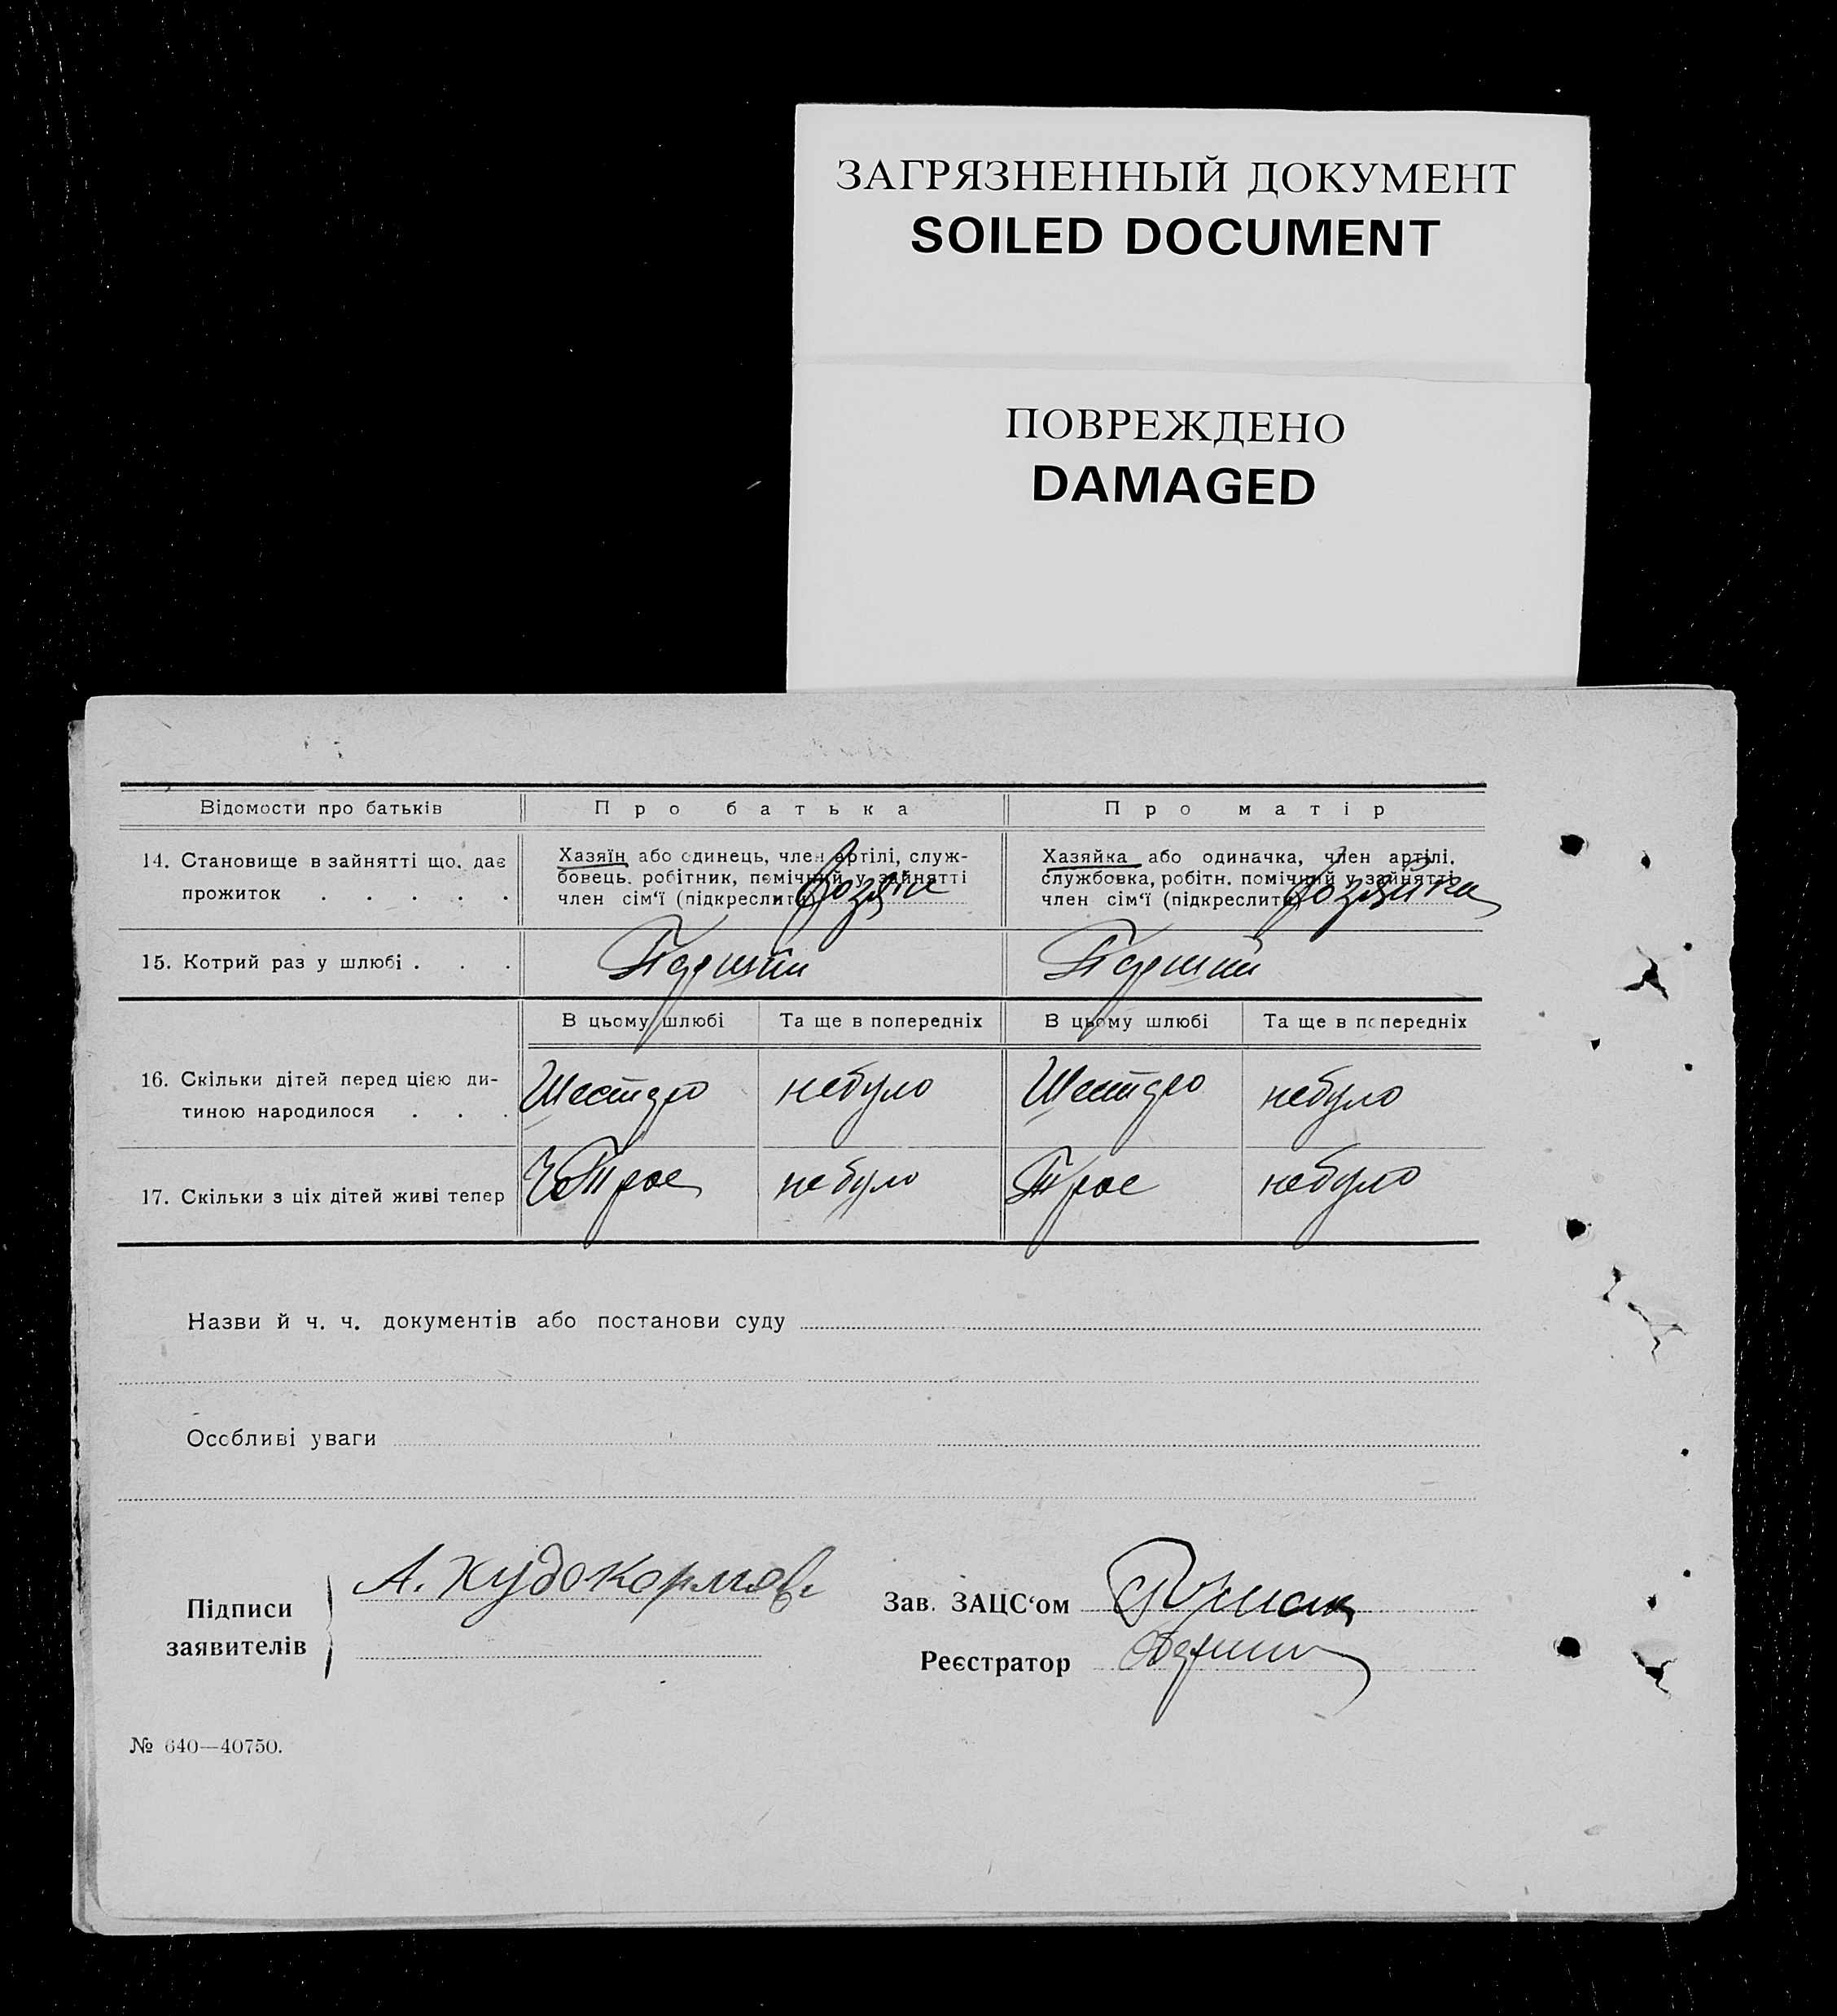 ЗАГРЯЗНЕННЫЙ ДОКУМЕНТ
SOILED DOCUMENT
ПОВРЕЖДЕНО
DAMAGED
Відомости про батьків
Про батька
Про матір
14. Становище в зайнятті що. дає
прожиток . . . . .
Хазяїн або одинець, член артілі, служ-
бовець. робітник, помічний у зайнятті
член сім‘ї (підкреслити) Хозяін
Хазяйка або одиначка, член артілі.
службовка, робітн. помічний у зайнятті
член сім‘ї (підкреслити) Хозяйка
15. Котрий раз у шлюбі . . .
Перший
Перший
В цьому шлюбі
Та ще в попередніх
В цьому шлюбі
Та ще в попередніх
16. Скільки дітей перед цією ди-
тиною народилося . . .
Шестеро
небуло
Шестеро
небуло
17. Скільки з ціх дітей живі тепер
Трое
небуло
Трое
небуло
Назви й ч. ч. документів або постанови суду
Особливі уваги
Підписи
заявителів
А. Худокормов
Зав. ЗАЦС‘ом
Реєстратор
№ 640—40750.